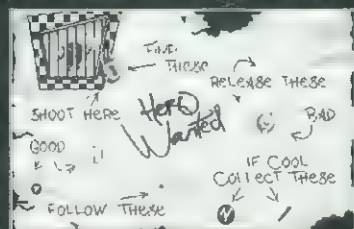 FIND
THESE
RELEASE THESE
SHOOT HERE
HERO
Wanted
BAD
GOOD
IF COOL
COLLECT THESE
N
FOLLOW THESE